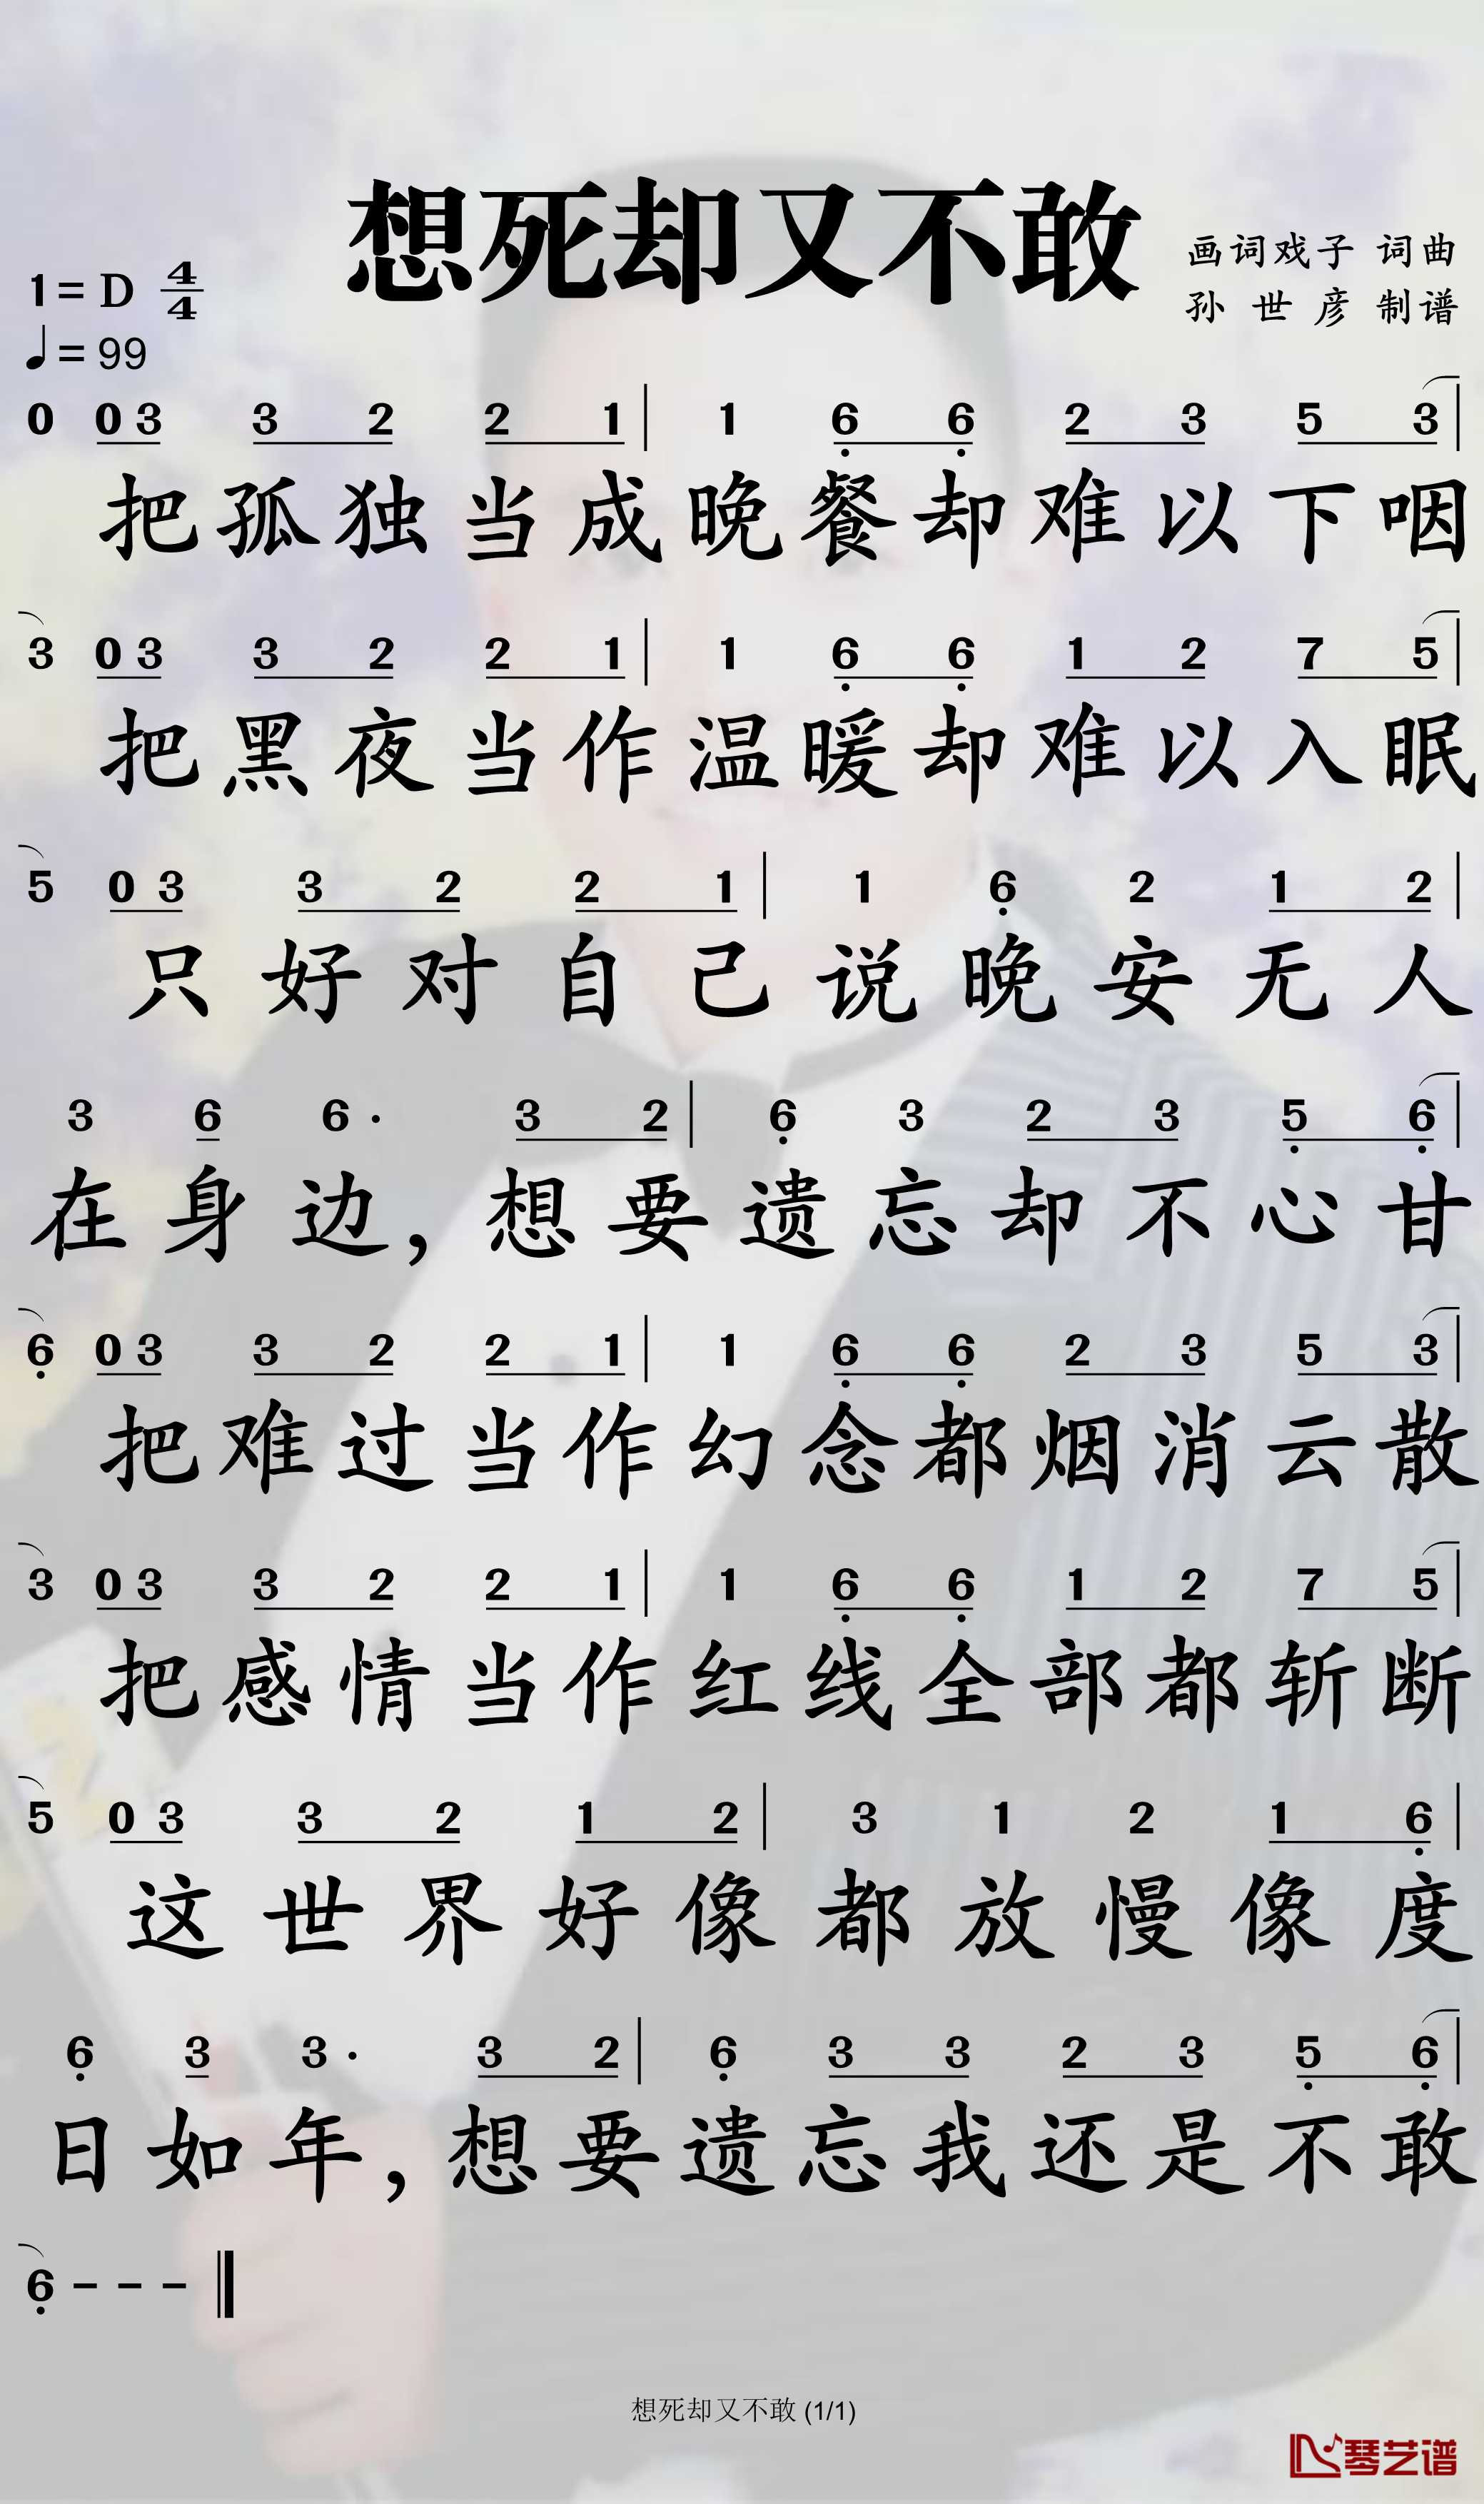 想死却又不敢
画词戏子 词曲
孙 世 彦 制谱
1= D 4/4
♩= 99
0 0 3 3 2 2 1 | 1 6̣ 6̣ 2 3 5 3 |
把孤独当成晚餐却难以下咽
3 0 3 3 2 2 1 | 1 6̣ 6̣ 1 2 7 5 |
把黑夜当作温暖却难以入眠
5 0 3 3 2 2 1 | 1 6̣ 2 1 2 |
只好对自己说晚安无人
3 6 6 · 3 2 | 6̣ 3 2 3 5̣ 6̣ |
在身边,想要遗忘却不心甘
6̣ 0 3 3 2 2 1 | 1 6̣ 6̣ 2 3 5 3 |
把难过当作幻念都烟消云散
3 0 3 3 2 2 1 | 1 6̣ 6̣ 1 2 7 5 |
把感情当作红线全部都斩断
5 0 3 3 2 1 2 | 3 1 2 1 6̣ |
这世界好像都放慢像度
6̣ 3 3 · 3 2 | 6̣ 3 3 2 3 5̣ 6̣ |
日如年,想要遗忘我还是不敢
6̣ - - -
想死却又不敢 (1/1)
琴艺谱